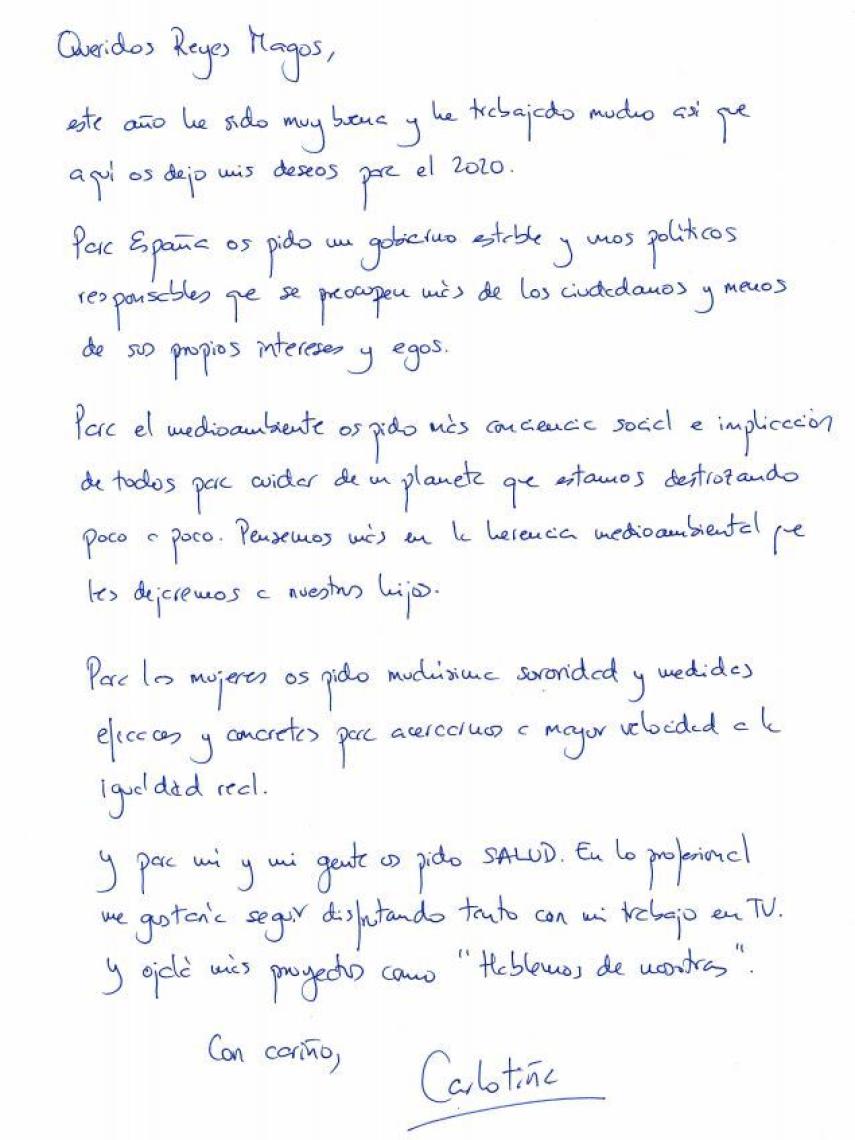 Queridos Reyes Magos,
este año he sido muy buena y he trabajado mucho asi que
aquí os dejo mis deseos para el 2020.
Para España os pido un gobierno estable y unos políticos
responsables que se preocupen más de los ciudadanos y menos
de sus propios intereses y egos.
Para el medioambiente os pido más conciencia social e implicación
de todos para cuidar de un planeta que estamos destrozando
poco a poco. Pensemos más en la herencia medioambiental que
les dejaremos a nuestros hijos.
Para las mujeres os pido muchísima sororidad y medidas
eficaces y concretas para acercarnos a mayor velocidad a la
igualdad real.
Y para mi y mi gente os pido SALUD. En lo profesional
me gustaría seguir disfrutando tanto con mi trabajo en TV.
Y ojalá más proyectos como "Hablemos de nosotras".
Con cariño,
Carlotiña